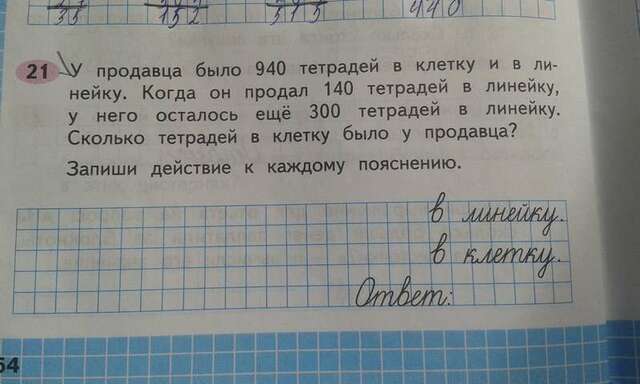 35 152 515 440
21 У продавца было 940 тетрадей в клетку и в ли-
нейку. Когда он продал 140 тетрадей в линейку,
у него осталось ещё 300 тетрадей в линейку.
Сколько тетрадей в клетку было у продавца?
Запиши действие к каждому пояснению.
в линейку.
в клетку.
Ответ:
54